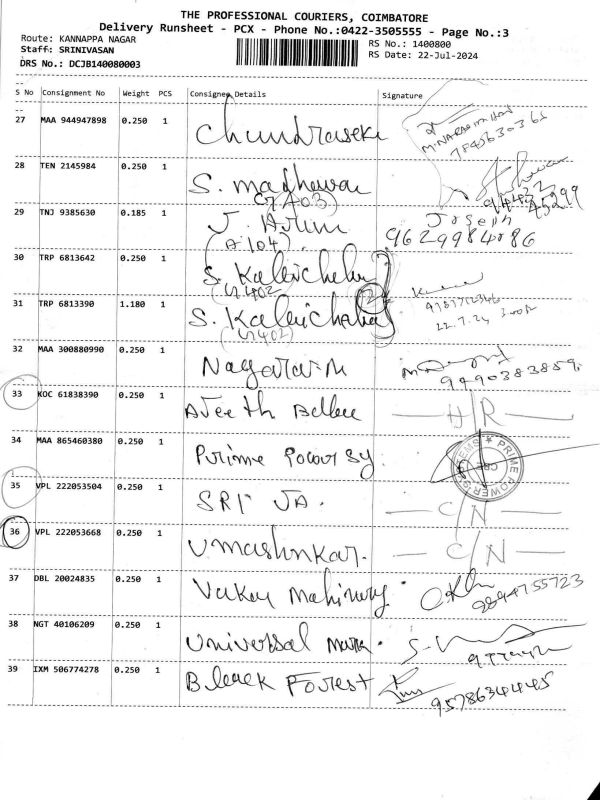 THE PROFESSIONAL COURIERS, COIMBATORE
Delivery Runsheet - PCX - Phone No.:0422-3505555 - Page No.:3
Route: KANNAPPA NAGAR
Staff: SRINIVASAN
DRS No.: DCJB140080003
RS No.: 1400800
RS Date: 22-Jul-2024
S No Consignment No Weight PCS Consignee Details Signature
27 MAA 944947898 0.250 1 Chandraseka
28 TEN 2145984 0.250 1 S. madhavan
(G403)
29 TNJ 9385630 0.185 1 J. Arun Joseph
(A104) 9629984086
30 TRP 6813642 0.250 1 S. Kalaichelv
(G402)
31 TRP 6813390 1.180 1 S. Kalaichelv 2
(G402) 22.7.24
32 MAA 300880990 0.250 1 Nagaraj.M
9490383859.
33 KOC 61838390 0.250 1 H/R
34 MAA 865460380 0.250 1 Prime Power Sy. PRIME POWER SYSTEMS CBE
35 VPL 222053504 0.250 1 SRI JA. C/N
36 VPL 222053668 0.250 1 Umashnkar. C/N
37 DBL 20024835 0.250 1 9894755723
38 NGT 40106209 0.250 1 Universal Mark.
39 IXM 506774278 0.250 1 Black Forest 9578634445